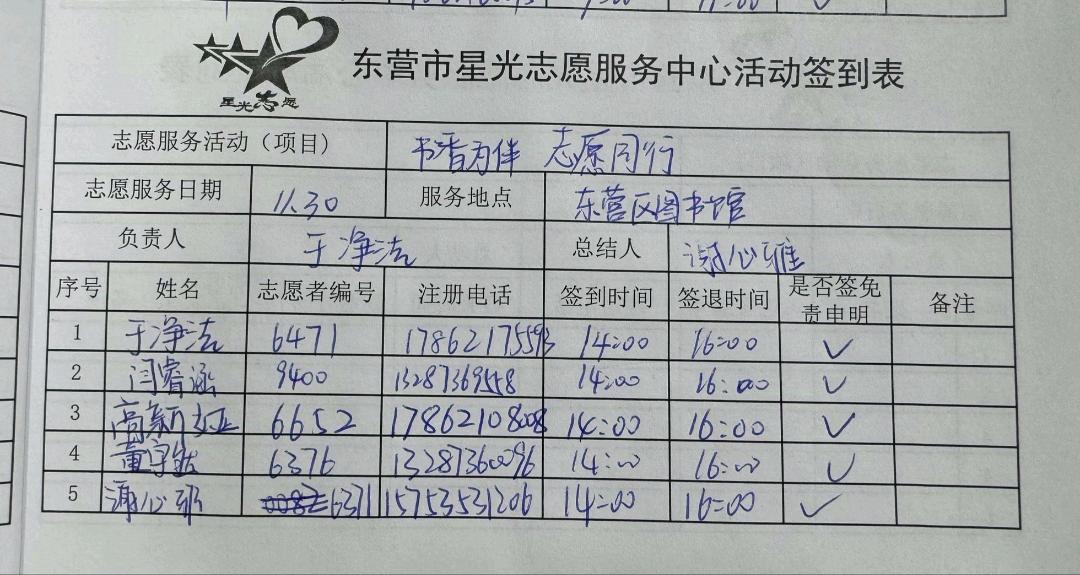 星光志愿
东营市星光志愿服务中心活动签到表
志愿服务活动（项目） 书香为伴 志愿同行
志愿服务日期 11.30 服务地点 东营区图书馆
负责人 于净洁 总结人 谢心雅
序号 姓名 志愿者编号 注册电话 签到时间 签退时间 是否签免责申明 备注
1 于净洁 6471 17862175593 14:00 16:00 ✓
2 闫睿涵 9400 14:00 16:00 ✓
3 6652 17862108008 14:00 16:00 ✓
4 6376 13287360096 14:00 16:00 ✓
5 谢心雅 6371 15753531206 14:00 16:00 ✓